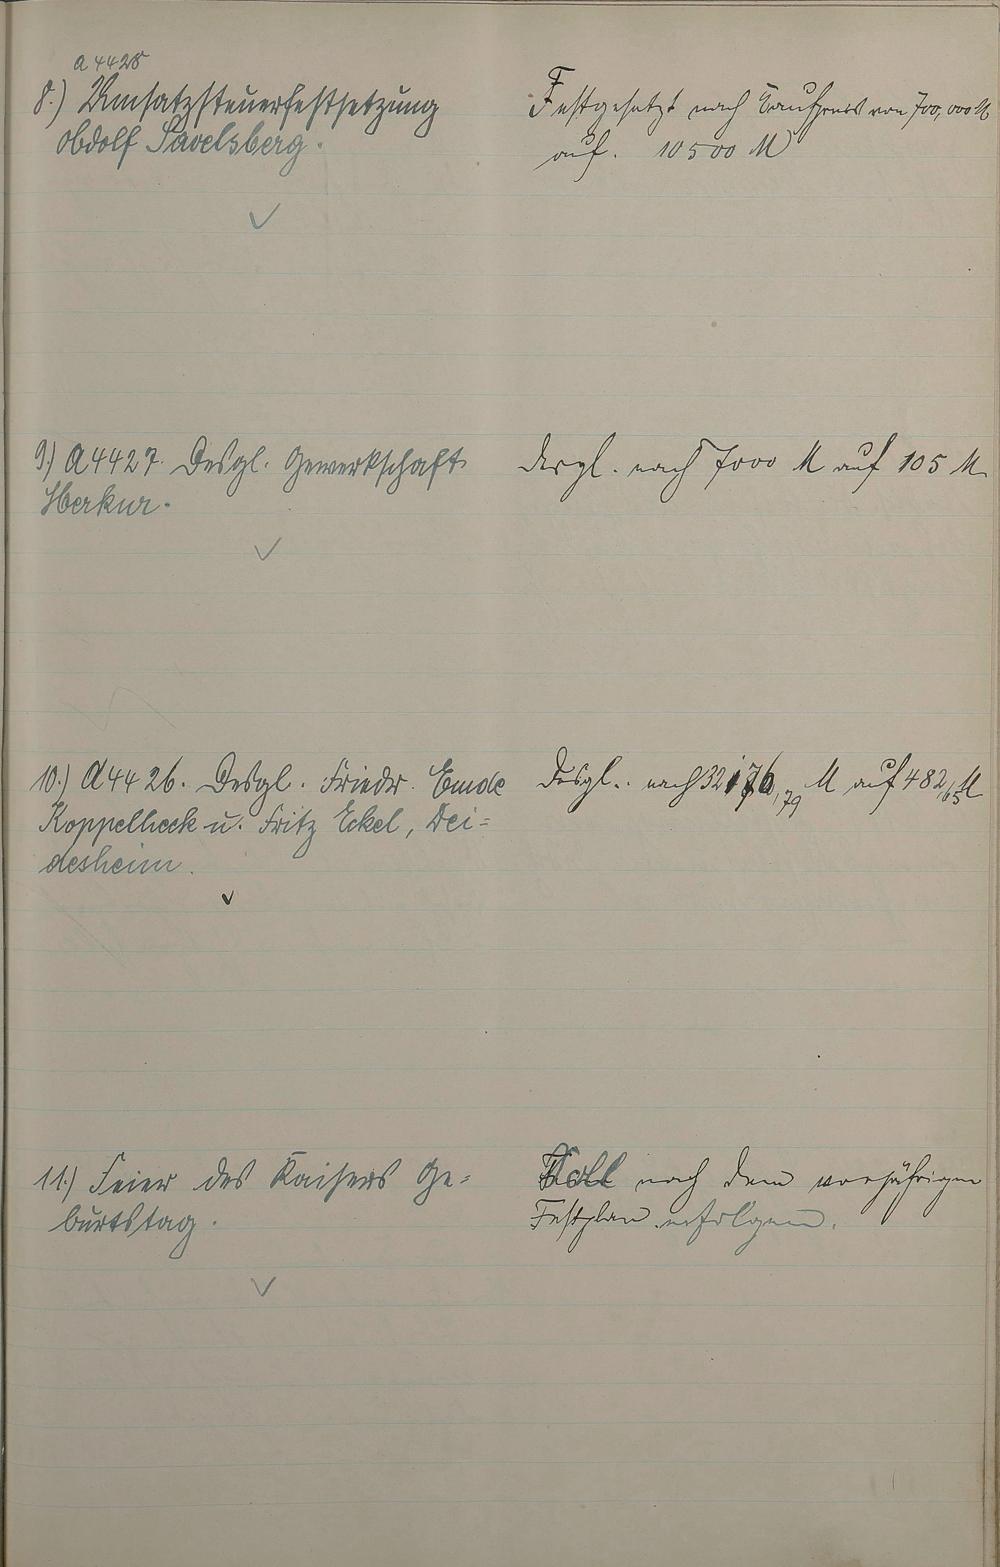 A 4428
8.) Umsatzsteuerfestsetzung
Adolf Savelsberg.
Festgesetzt nach Kaufpreis von 700,000 M
auf. 10500 M
9.) A 4427. Desgl. Gewerkschaft
Merkur.
desgl. nach 7000 M auf 105 M.
10.) A 4426. Desgl. Friedr. Emde
Koppelheck u. Fritz Eckel, Dei=
desheim.
Desgl. nach 32176,79 M auf 482,65 M
11.) Feier des Kaisers Ge=
burtstag.
Soll nach dem vorjährigen
Festplan erfolgen.